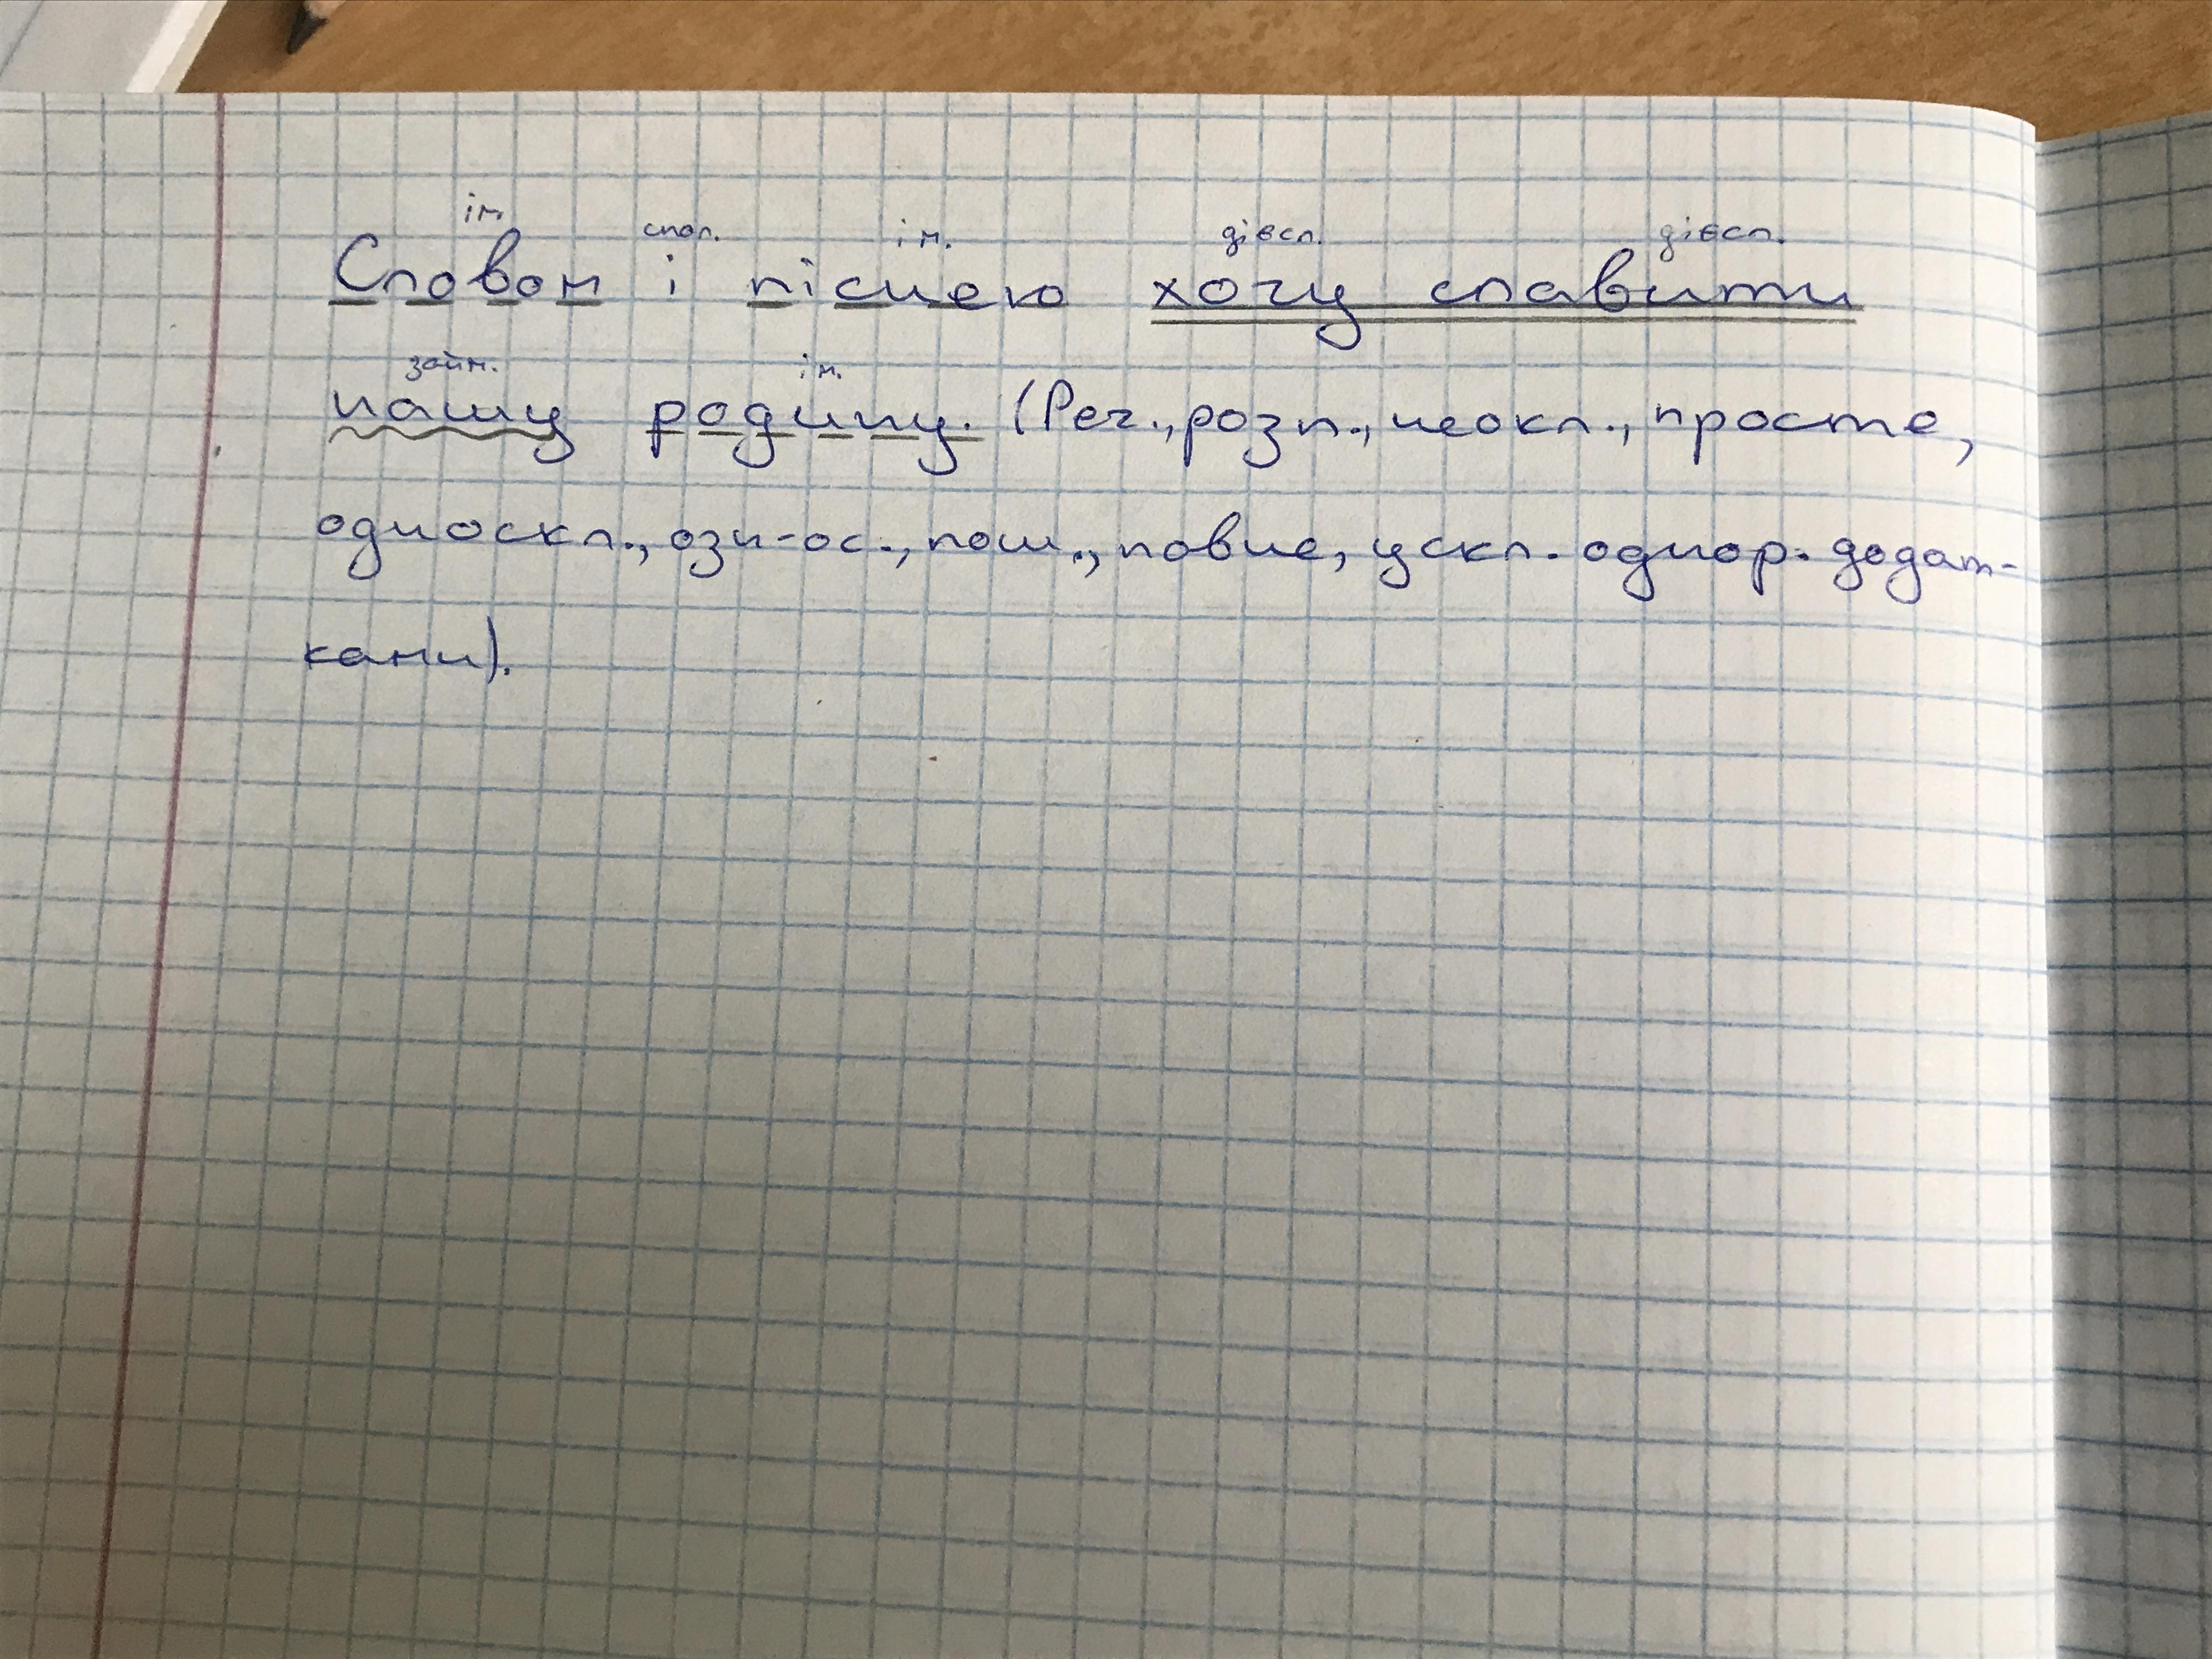 ім. спол. ім. дієсл. дієсл.
Словом і піснею хочу славити
займ. ім.
нашу родину. (Реч., розп., неокл., просте,
односкл., озн-ос., пош., повне, ускл. однор. додат-
ками).